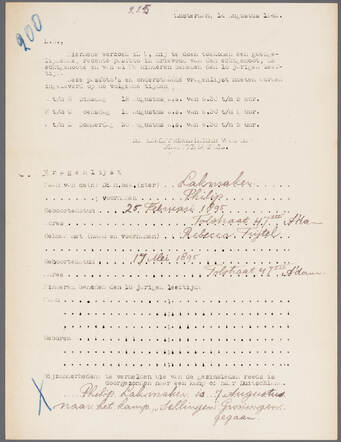 200
225
Amsterdam, 14 Augustus 1942.
L.S.,
Hiermede verzoek U, mij te doen toekomen een gezegelijkende, recente pasfoto in drievoud van den echtgenoot, de
echtgenoote en van alle kinderen beneden den 16 jarigen leeftijd.
Deze pasfoto's en onderstaande vragenlijst moeten worden
ingeleverd op de volgende tijden:
t/m Dinsdag 18 Augustus a.s. van 8.30 t/m uur.
t/m Woensdag 19 Augustus a.s. van 8.30 t/m uur.
t/m Donderdag 20 Augustus a.s. van 8.30 t/m uur.
Vragenlijst
Naam van Lakmaker
voornamen: Philip
Geboortedatum 25 Februari 1895
Adres Tolstraat 47 III A'dam
Gehuwd met (naam en voornamen) Rebecca Frijtel
Geboortedatum 17 Mei 1895
Adres Tolstraat 47 III A'dam
Kinderen beneden den 16 jarigen leeftijd
Naam
Geboren
Bijzonderheden te vermelden die van de gezinsleden reeds is
doorgezonden naar een kamp of naar Duitschland.
Philip Lakmaker is 7 Augustus
naar het kamp, Sellingen Groningen
gegaan.